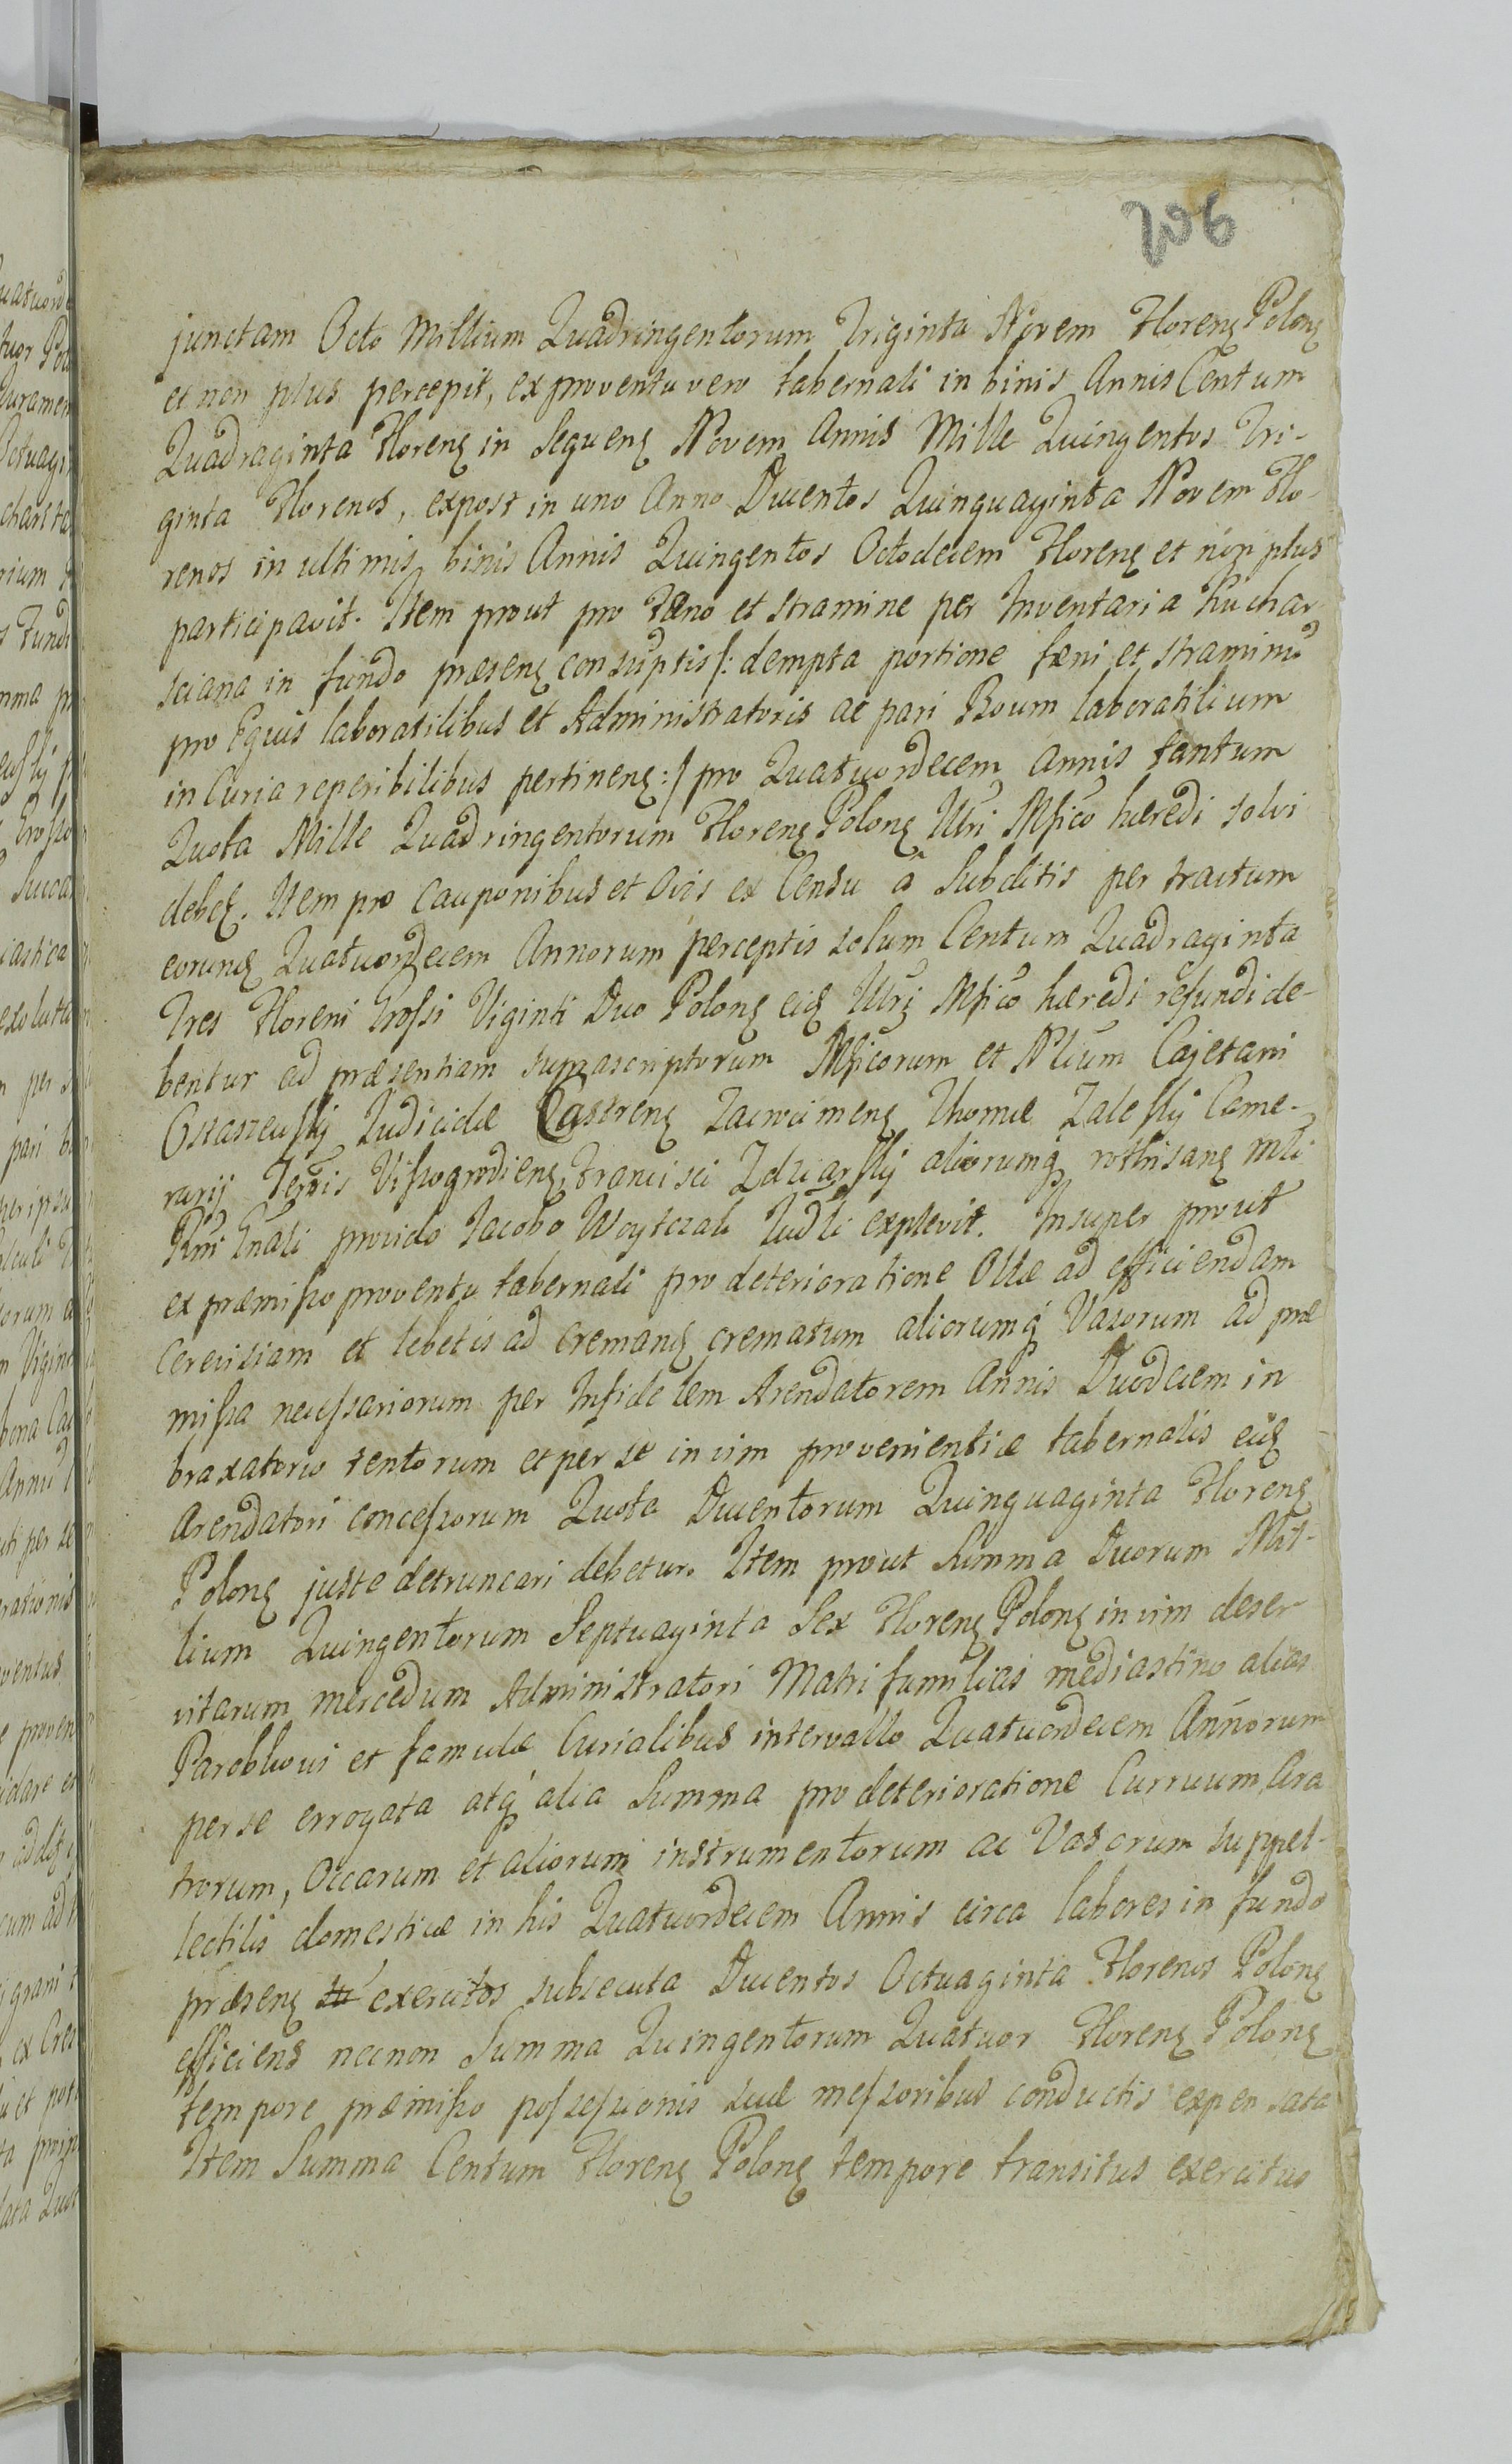 206
junctam Octo Millium Quadringentorum Triginta Novem Florenȩ Polonȩ
et non plus percepit, ex proventu vero tabernali in binis Annis Centum
Quadraginta Florenȩ in sequenȩ Novem Annis Mille Quingentos Tri-
ginta Florenos, expost in uno Anno Ducentos Quinquaginta Novem Flo-
renos in ultimis binis Annis Quingentos Octodecem Florenȩ et non plus
participavit. Item prout pro Fæno et stramine per Inventaria Kuchar-
sciana in fundo præsenȩ consuptis /: dempta portione fæni et straminis
pro Equis laboratilibus et Administratoris ac pari Boum laboratilium
in Curia reperibilibus pertinenȩ :/ pro Quatuordecem annis tantum
Quota Mille Quadringentorum Florenȩ Polonȩ Utri Mfico hæredi solvi
debeȩ. Item pro Cauponibus et Ovis ex Censu a Subditis per tractum
eorunȩ Quatuordecem Annorum perceptis solum Centum Quadraginta
Tres Floreni Grossi Viginti Duo Polonȩ eiȩ Utri Mfico hæredi refundi de-
bentur ad præsentiam suprascriptorum Mficorum et Nlium Cajetani
Ostaszewskij Judicidæ Castrenȩ Zacrocimenȩ Thomæ Zaleskij Came-
rarij Terris Vissogrodienȩ, Francisci Zdziarskij aliorumq́
Gnali provido Jacobo Woytczak Judli explevit. Insuper prout
ex præmisso proventu tabernali pro deterioratione Ollæ ad efficiendam
Cerevisiam et lebetis ad cremanȩ crematum aliorumq́ Vasorum ad præ
missa necessariorum per Infidelem Arendatorem Annis Duodecem in
braxatorio tentorum et per se in vim provenientiæ tabernalis eiȩ
Arendatori concessorum Quota Ducentorum Quinquaginta Florenȩ
Polonȩ juste detruncari debetur. Item prout Summa Duorum Mil-
lium Quingentorum Septuaginta Sex Florenȩ Polonȩ in vim deser
vitarum mercedum Administratori Matri familias mediastino alias
Parobkowi et famulæ Curialibus intervallo Quatuordecem Annorum
per se errogata atq́ alia Summa pro deterioratione Curruum Ara
trorum, Occarum et aliorum instrumentorum ac Vasorum suppel-
lectilis domesticæ in his Quatuordecem Annis circa labores in fundo
præsenȩ exercitos subsecuta Ducentos Octuaginta Florenos Polonȩ
efficiens necnon Summa Quingentorum Quatuor Florenȩ Polonȩ
tempore præmisso possessionis suæ messoribus conductis expensata
Item Summa Centum Florenȩ Polonȩ tempore transitus exercitus